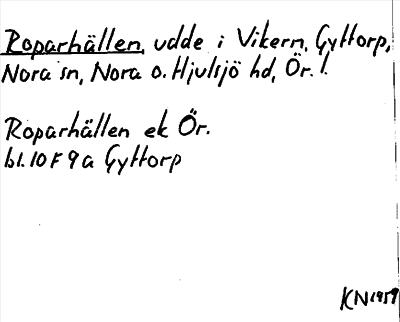 Roparhällen, udde i Vikern, Gyttorp,
Nora sn, Nora o. Hjulsjö hd, Ör. l.
Roparhällen ek Ör.
bl. 10 F 9 a Gyttorp
KN 1959